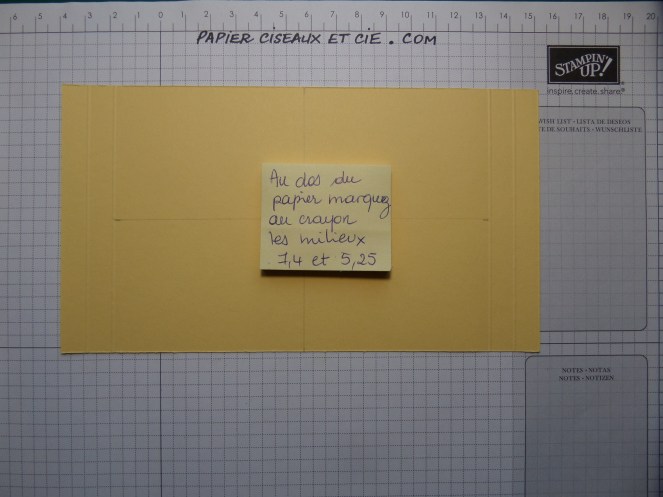 6 5 4 3 2 1 0 1 2 3 4 5 6 7 8 9 10 11 12 13 14 15 16 17 18 19 20
PAPIER CISEAUX ET CIE . COM
STAMPIN' UP!
inspire.create.share.
WISH LIST • LISTA DE DESEOS
TE DE SOUHAITS • WUNSCHLISTE
Au dos du
papier marquez
au crayon
les milieux
7,4 et 5,25
NOTES • NOTAS
NOTES • NOTIZEN